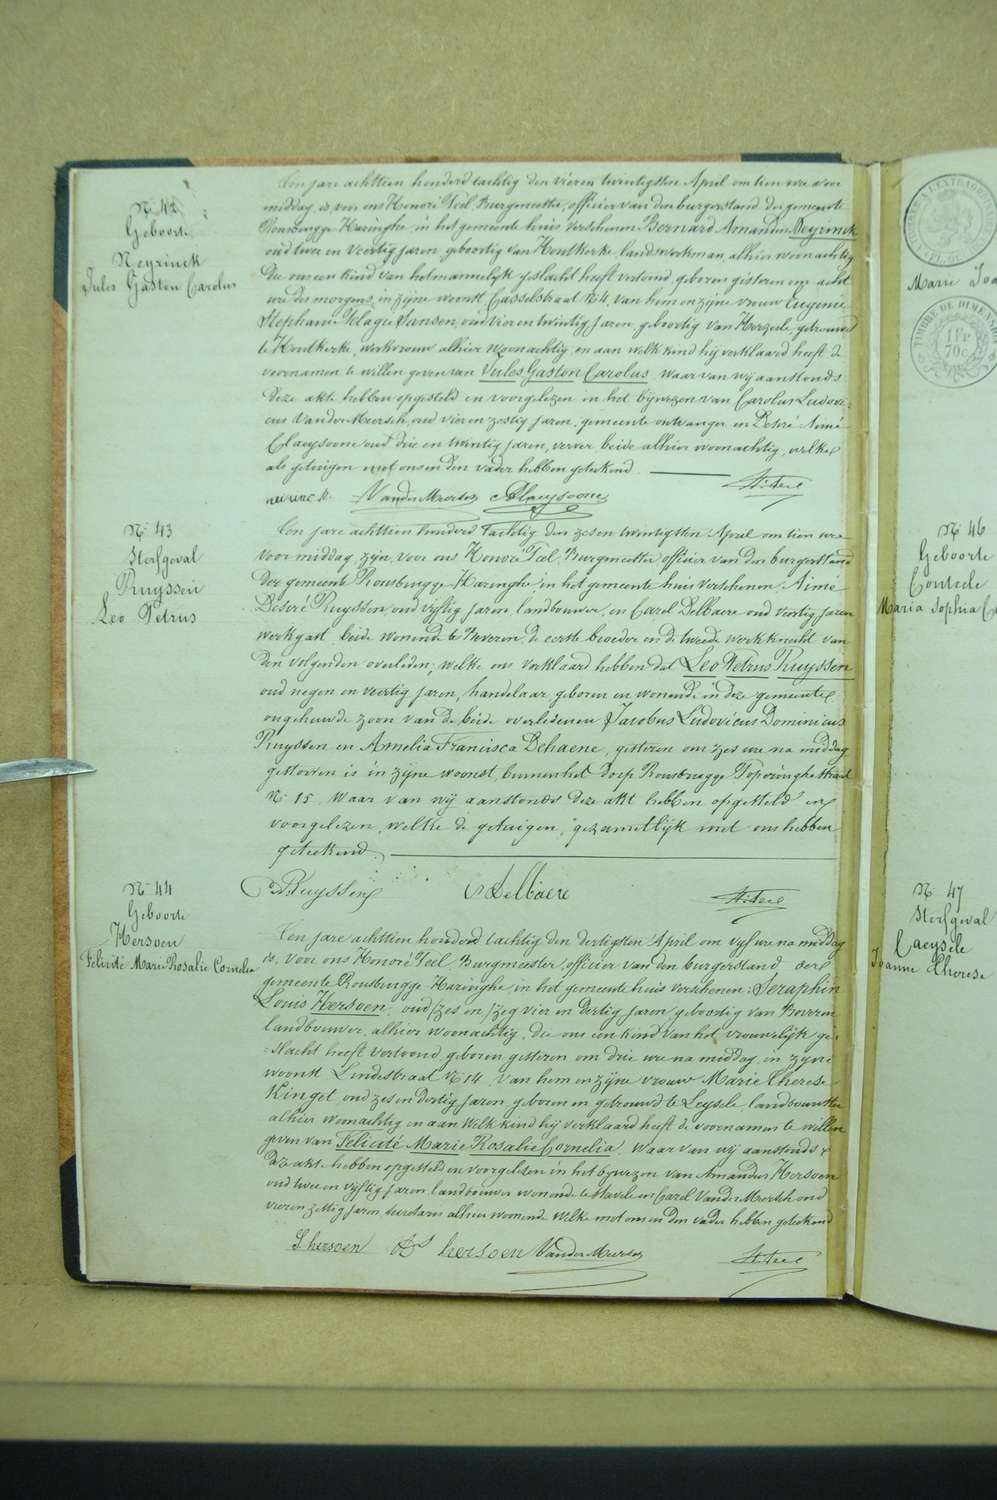 N° 42
Geboorte
Neyrinck
Jules Gaston Carolus
Een jare achttien honderd tachtig den vieren twintigsten April om tien ure voor
middag, is voor ons Honoré Teel, Burgmeester, officier van den burgerstand der gemeente
Rousbrugge Haringhe, in het gemeente huis verschenen Bernard Amandus Neyrinck
oud twee en veertig jaren, geboortig van Houtkerke landswerkman, alhier woonachtig
die ons een kind van het mannelijk geslacht heeft vertoond, geboren gisteren om acht
ure des morgens, in zijne woonst Casselstraat N° 4, van hem en zijne vrouw Eugenie
Stephanie Jansen, oud vier en twintig jaren, geboortig van Herzeele, getrouwd
te Houtkerke, werkvrouw alhier woonachtig en aan welk kind hij verklaard heeft de
voornamen te willen geven van Jules Gaston Carolus. Waar van wij aanstonds
deze akte hebben opgesteld en voorgelezen in het bijwezen van Carolus Ludovi=
cus VanderMeersch, oud vier en zestig jaren, gemeente ontvanger en Desiré Aimé
Claeysoone oud drie en twintig jaren, verver beide alhier woonachtig, welke
als getuigen met ons en den vader hebben geteekend.
VanderMeersch AClaeysoone H. Teel
N° 43
Sterfgeval
Ruyssen
Leo Petrus
Een jare achttien honderd tachtig den zes en twintigsten April om tien ure
voor middag, zijn voor ons Honoré Teel, Burgmeester officier van den burgerstand
der gemeente Rousbrugge Haringhe, in het gemeente huis verschenen, Aimé
Desiré Ruyssen, oud vijftig jaren landbouwer, en Carel Delbaere oud veertig jaren
werkgast, beide wonende te Beveren, de eerste broeder en de tweede werkknecht van
den volgenden overleden; welke ons verklaard hebben dat Leo Petrus Ruyssen
oud negen en veertig jaren, handelaar, geboren en wonende in deze gemeente
ongehuwde zoon van de beide overledenen Jacobus Ludovicus Dominicus
Ruyssen en Amelia Francisca Dehaene, gisteren om zes ure na middag
gestorven is in zijne woonst, binnen het dorp Rousbrugge Poperinghestraat
N° 15. Waar van wij aanstonds deze akt hebben opgesteld en
voorgelezen, welke de getuigen, gezamentlijk met ons hebben
geteekend.
Ruyssen C Delbaere H. Teel
N° 44
Geboorte
Hersoen
Felicité Marie Rosalie Cornelia
Een jare achttien honderd tachtig den dertigsten April om vijf ure na middag
is, voor ons Honoré Teel, Burgmeester, officier van den burgerstand der
gemeente Rousbrugge Haringhe, in het gemeente huis verschenen: Seraphin
Louis Hersoen, oud zes en vier en dertig jaren, geboortig van Beveren
landbouwer, alhier woonachtig, die ons een kind van het vrouwelijk ge=
=slacht heeft vertoond, geboren gisteren om drie ure na middag, in zijne
woonst Lindestraat N° 14, van hem en zijne vrouw Marie Therese
Kinget oud zes en dertig jaren, geboren en getrouwd te Leysele, landbouwster
alhier woonachtig en aan welk kind hij verklaard heeft de voornamen te willen
geven van Felicité Marie Rosalie Cornelia. Waar van wij aanstonds
deze akte hebben opgesteld en voorgelezen in het bijwezen van Amandus Hersoen
oud twee en vijftig jaren, landbouwer wonende te Stavele en Carel VanderMeersch oud
vier en zestig jaren, secretaris alhier wonende welke met ons en den vader hebben geteekend
S hersoen hersoen VanderMeersch H. Teel
TIMBRE DE DIMENSION
1 Fr
70c
Marie
N° 46
Geboorte
Coutede
Maria Sophia
N° 47
Sterfgeval
Caeysele
Joanne Therese